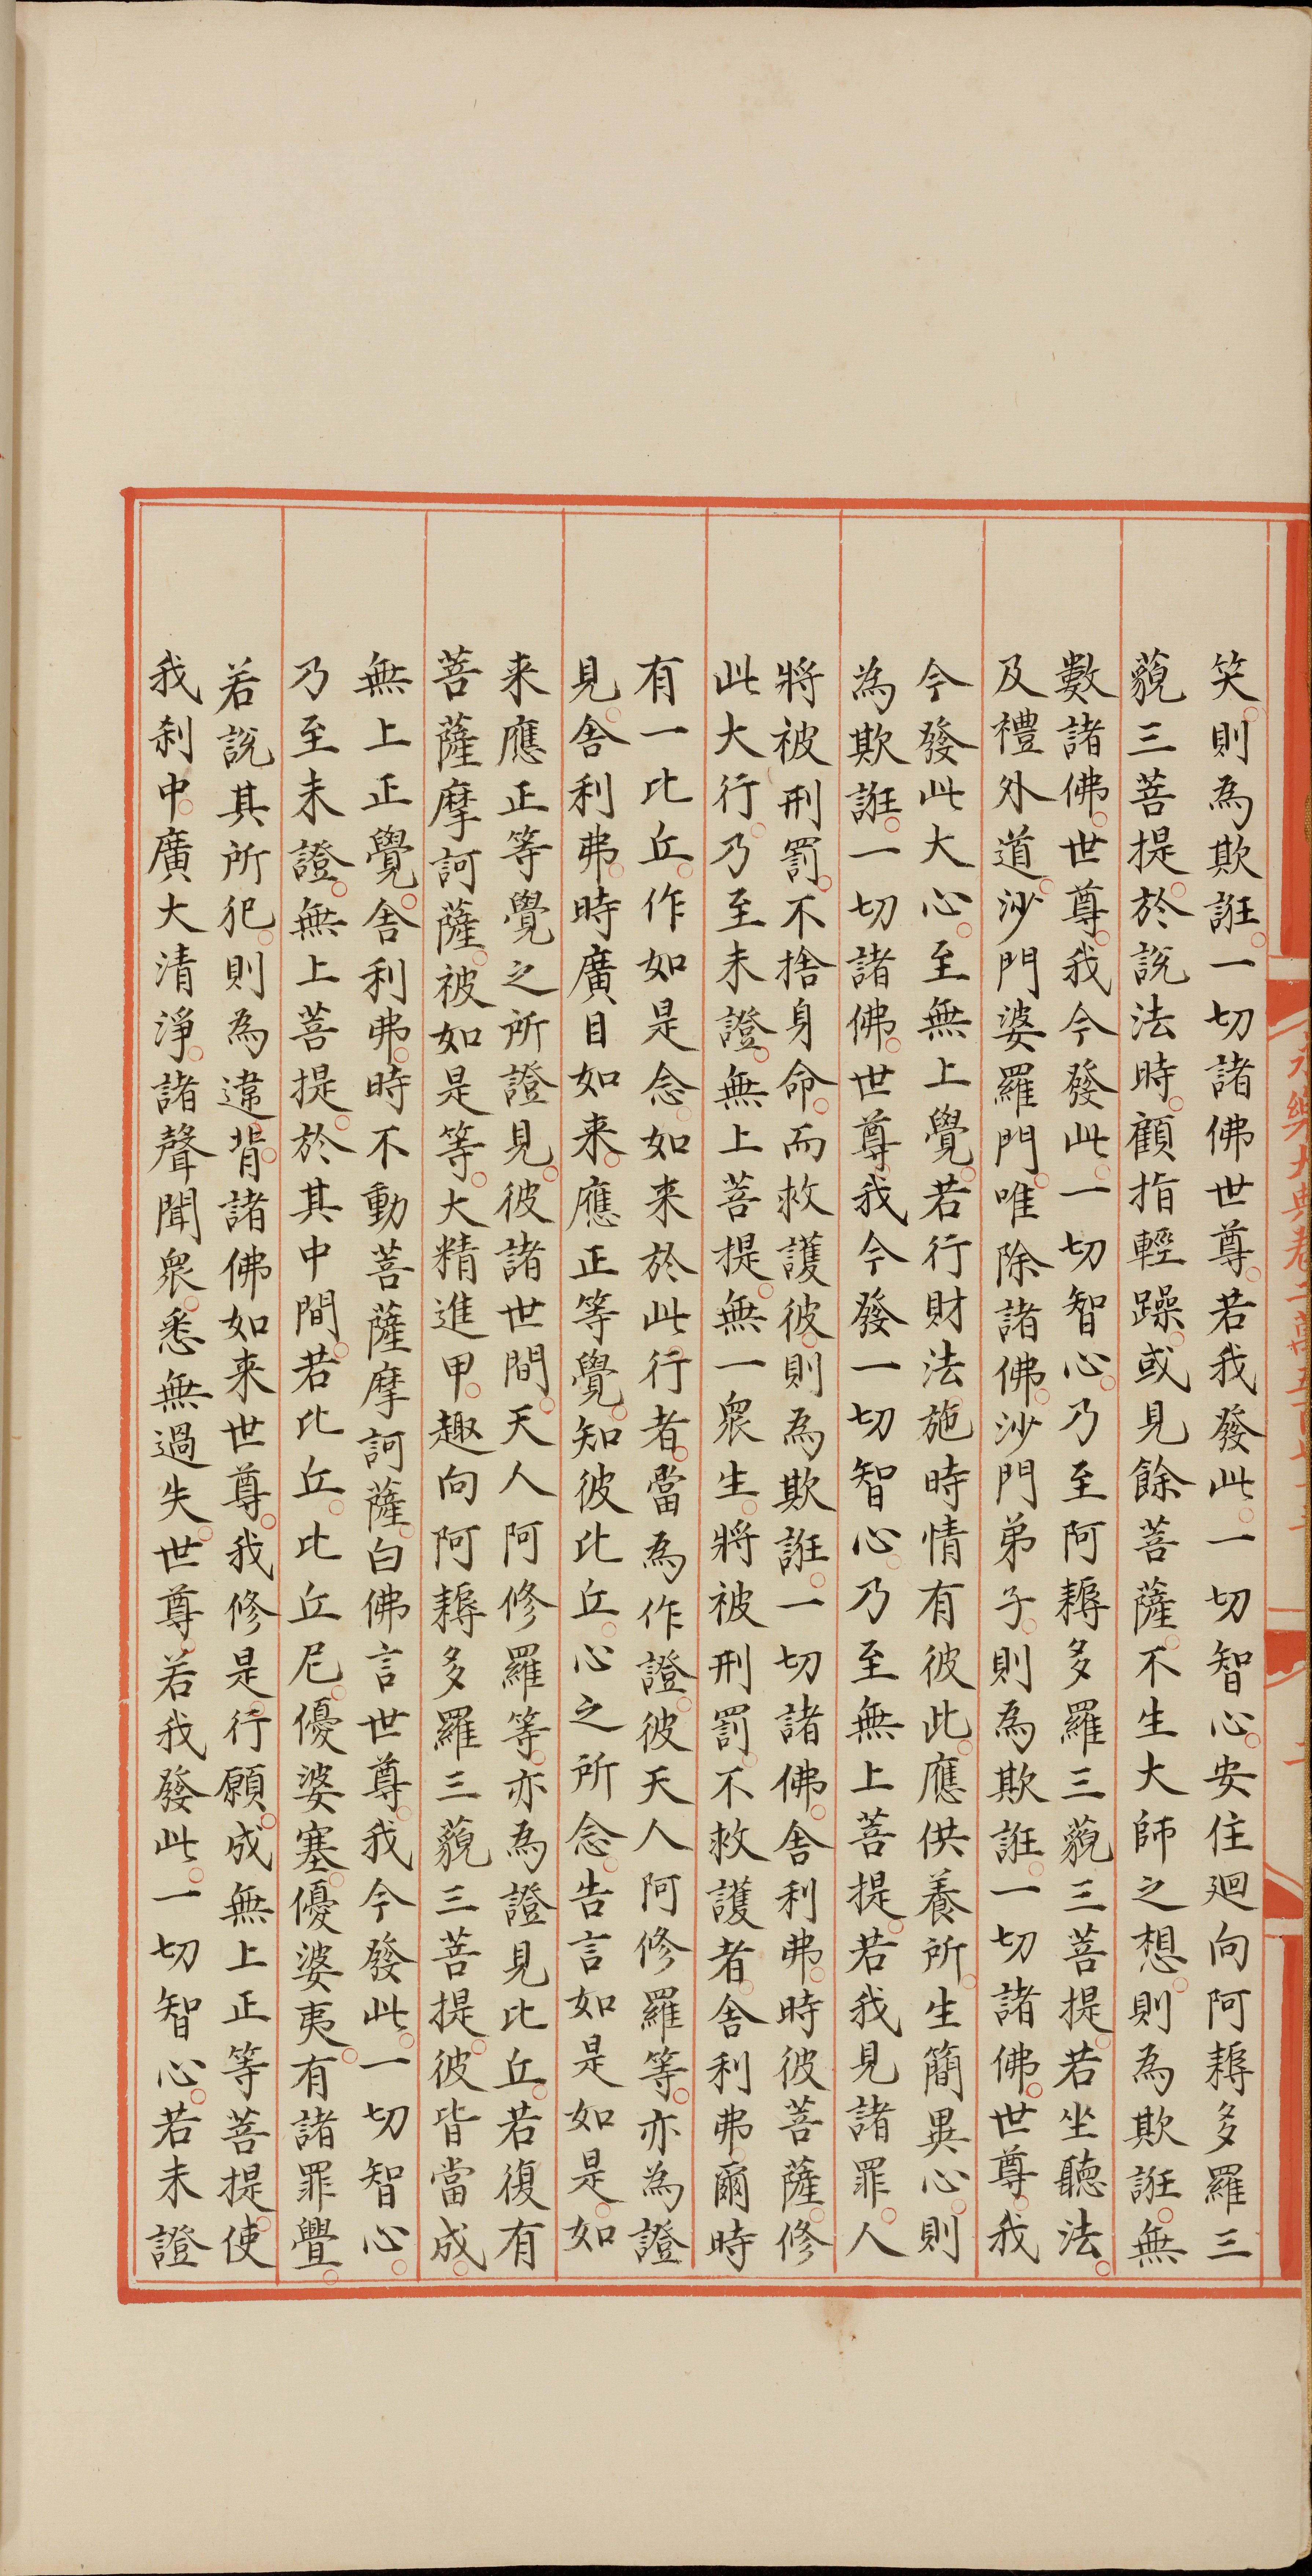 笑則為欺誑一切諸佛世尊若我發此一切智心安住廻向阿耨多羅三
藐三菩提於說法時顧指輕躁或見餘菩薩不生大師之想則為欺誑無
數諸佛世尊我今發此一切智心乃至阿耨多羅三藐三菩提若坐聽法
及禮外道沙門婆羅門唯除諸佛沙門弟子則為欺誑一切諸佛世尊我
今發此大心至無上覺若行財法施時情有彼此應供養所生簡異心則
為欺誑一切諸佛世尊我今發一切智心乃至無上菩提若我見諸罪人
將被刑罰不捨身命而救護彼則為欺誑一切諸佛舍利弗時彼菩薩修
此大行乃至未證無上菩提無一衆生將被刑罰不救護者舍利弗爾時
有一比丘作如是念如来於此行者當為作證彼天人阿修羅等亦為證
見舍利弗時廣目如来應正等覺知彼比丘心之所念告言如是如是如
来應正等覺之所證見彼諸世間天人阿修羅等亦為證見比丘若復有
菩薩摩訶薩被如是等大精進甲趣向阿耨多羅三藐三菩提彼皆當成
無上正覺舍利弗時不動菩薩摩訶薩白佛言世尊我今發此一切智心
乃至未證無上菩提於其中間若比丘比丘尼優婆塞優婆夷有諸罪舋
若說其所犯則為違背諸佛如来世尊我修是行願成無上正等菩提使
我刹中廣大清淨諸聲聞衆悉無過失世尊若我發此一切智心若未證